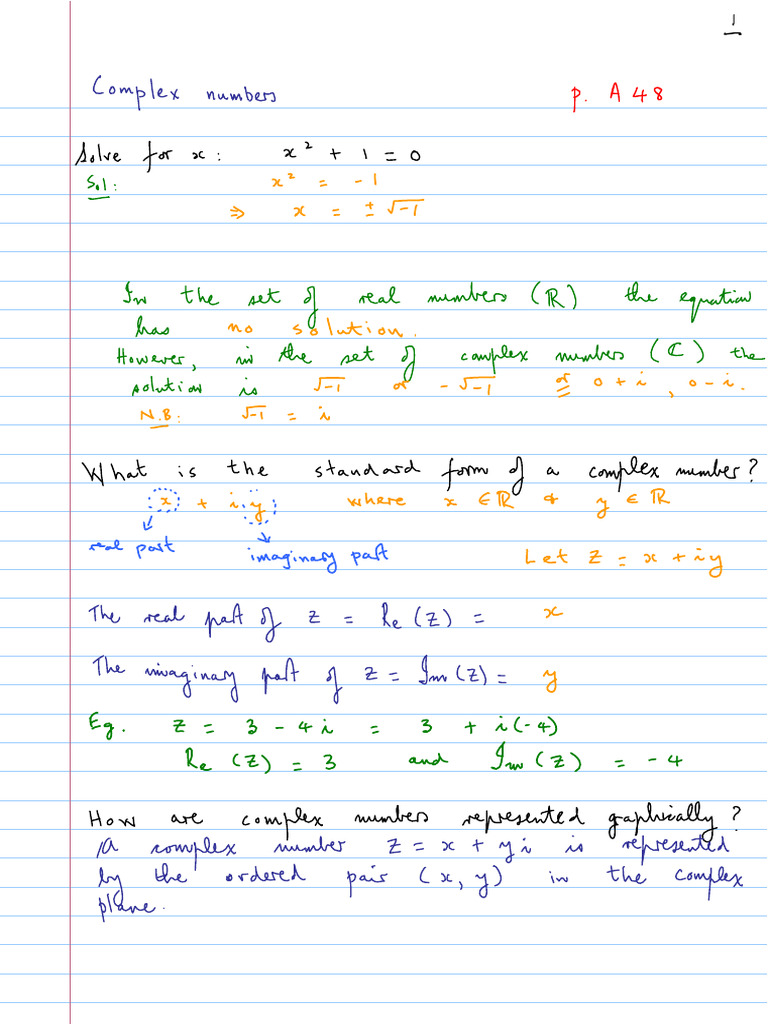 1
Complex numbers p. A 48
Solve for x: x² + 1 = 0
Sol: x² = -1
⇒ x = ±√-1
In the set of real numbers (ℝ) the equation
has no solution.
However, in the set of complex numbers (ℂ) the
solution is √-1 or -√-1 or 0 + i , 0 - i.
N.B: √-1 = i
What is the standard form of a complex number?
x + i y where x ∈ ℝ & y ∈ ℝ
real part imaginary part Let z = x + iy
The real part of z = Re(z) = x
The imaginary part of z = Im(z) = y
Eg. z = 3 - 4i = 3 + i(-4)
Re(z) = 3 and Im(z) = -4
How are complex numbers represented graphically?
A complex number z = x + yi is represented
by the ordered pair (x, y) in the complex
plane.